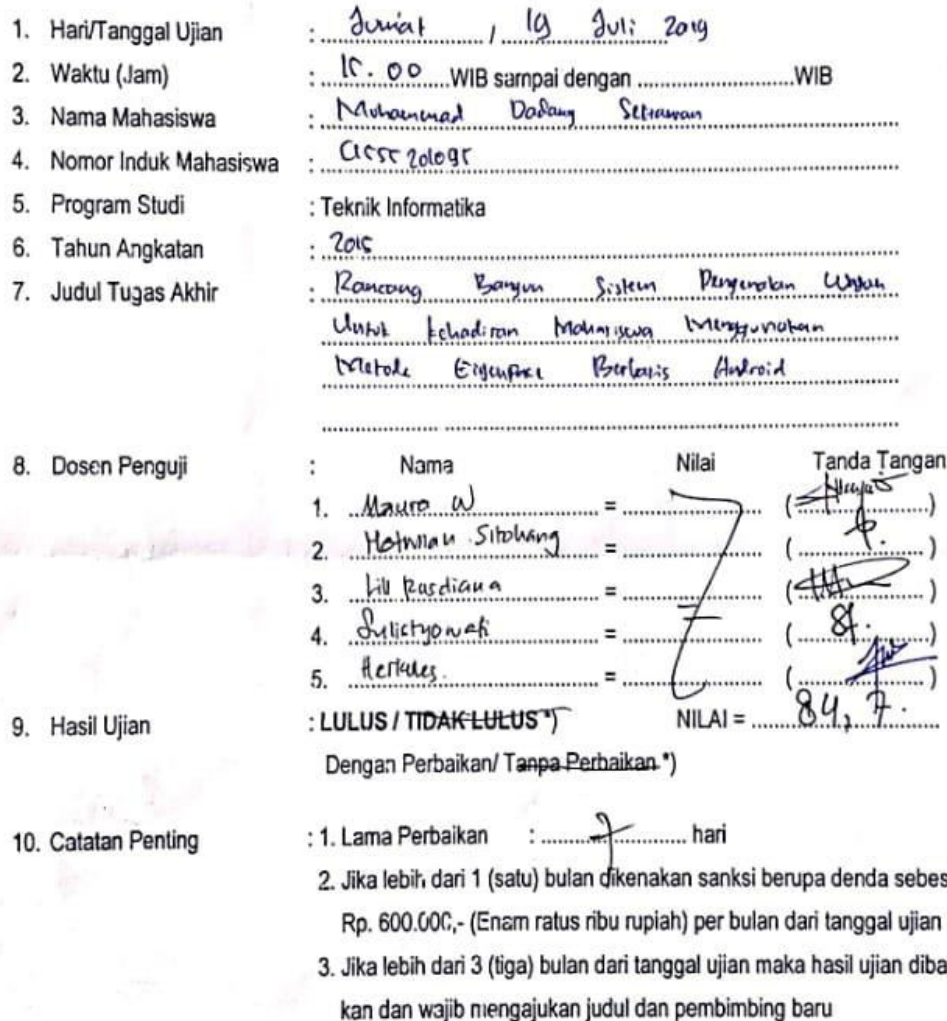 1. Hari/Tanggal Ujian : Jumat, 19 Juli 2019
2. Waktu (Jam) : 15.00 WIB sampai dengan WIB
3. Nama Mahasiswa : Mohammad Dadang Setiawan
4. Nomor Induk Mahasiswa :
5. Program Studi : Teknik Informatika
6. Tahun Angkatan : 2015
7. Judul Tugas Akhir : Rancang Bangun Sistem Pengenalan Wajah
Untuk kehadiran Mahasiswa Menggunakan
Metode Eigenface Berbasis Android
8. Dosen Penguji : Nama Nilai Tanda Tangan
1. Mauro W = ( )
2. Hotmian Sitohang = ( )
3. Lili Rusdiana = ( )
4. Sulistyowati = ( )
5. Herkules. = ( )
9. Hasil Ujian : LULUS / TIDAK LULUS *) NILAI = 84,7.
Dengan Perbaikan/ Tanpa Perbaikan *)
10. Catatan Penting : 1. Lama Perbaikan : 7 hari
2. Jika lebih dari 1 (satu) bulan dikenakan sanksi berupa denda sebes
Rp. 600.000,- (Enam ratus ribu rupiah) per bulan dari tanggal ujian
3. Jika lebih dari 3 (tiga) bulan dari tanggal ujian maka hasil ujian diba
kan dan wajib mengajukan judul dan pembimbing baru